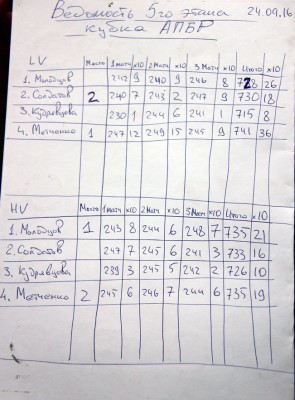 Ведомость 5го этапа 24.09.16
кубка АПБР
LV Место 1 матч x10 2 Матч x10 3 Матч x10 Итого x10
1. Молодцов 242 9 240 9 246 8 728 26
2. Солдатов 2 240 7 243 2 247 9 730 18
3. Кудрявцова 230 1 244 6 241 1 715 8
4. Матченко 1 247 12 249 15 245 9 741 36
HV Место 1 Матч x10 2 Матч x10 3 Матч x10 Итого x10
1. Молодцов 1 243 8 244 6 248 7 735 21
2. Солдатов 247 7 245 6 241 3 733 16
3. Кудрявцова 239 3 245 5 242 2 726 10
4. Матченко 2 245 6 246 7 244 6 735 19